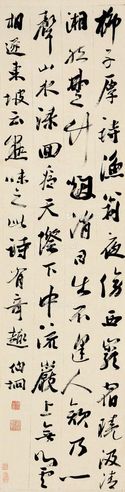 柳子厚詩漁翁夜傍西巖宿曉汲清
湘然楚竹煙消日出不見人欸乃一
聲山水淥回看天際下中流巖上無心雲
相逐東坡云熟味之此詩有奇趣 伯垌